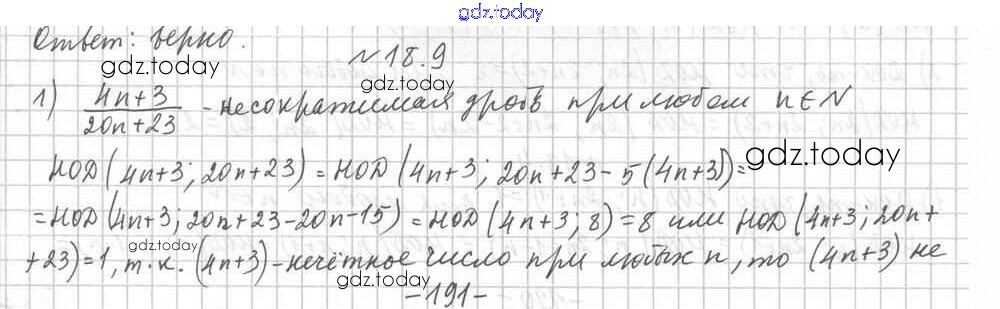 gdz.today
Ответ: верно.
№18.9
gdz.today
gdz.today
1) (4n+3)/(20n+23) - несократимая дробь при любом n∈N
gdz.today
НОД(4n+3; 20n+23) = НОД(4n+3; 20n+23-5(4n+3))=
=НОД(4n+3; 20n+23-20n-15) = НОД(4n+3; 8) = 8 или НОД(4n+3; 20n+
gdz.today
+23)=1, т.к. (4n+3)-нечётное число при любых n, то (4n+3) не
gdz.today
gdz.today
-191-